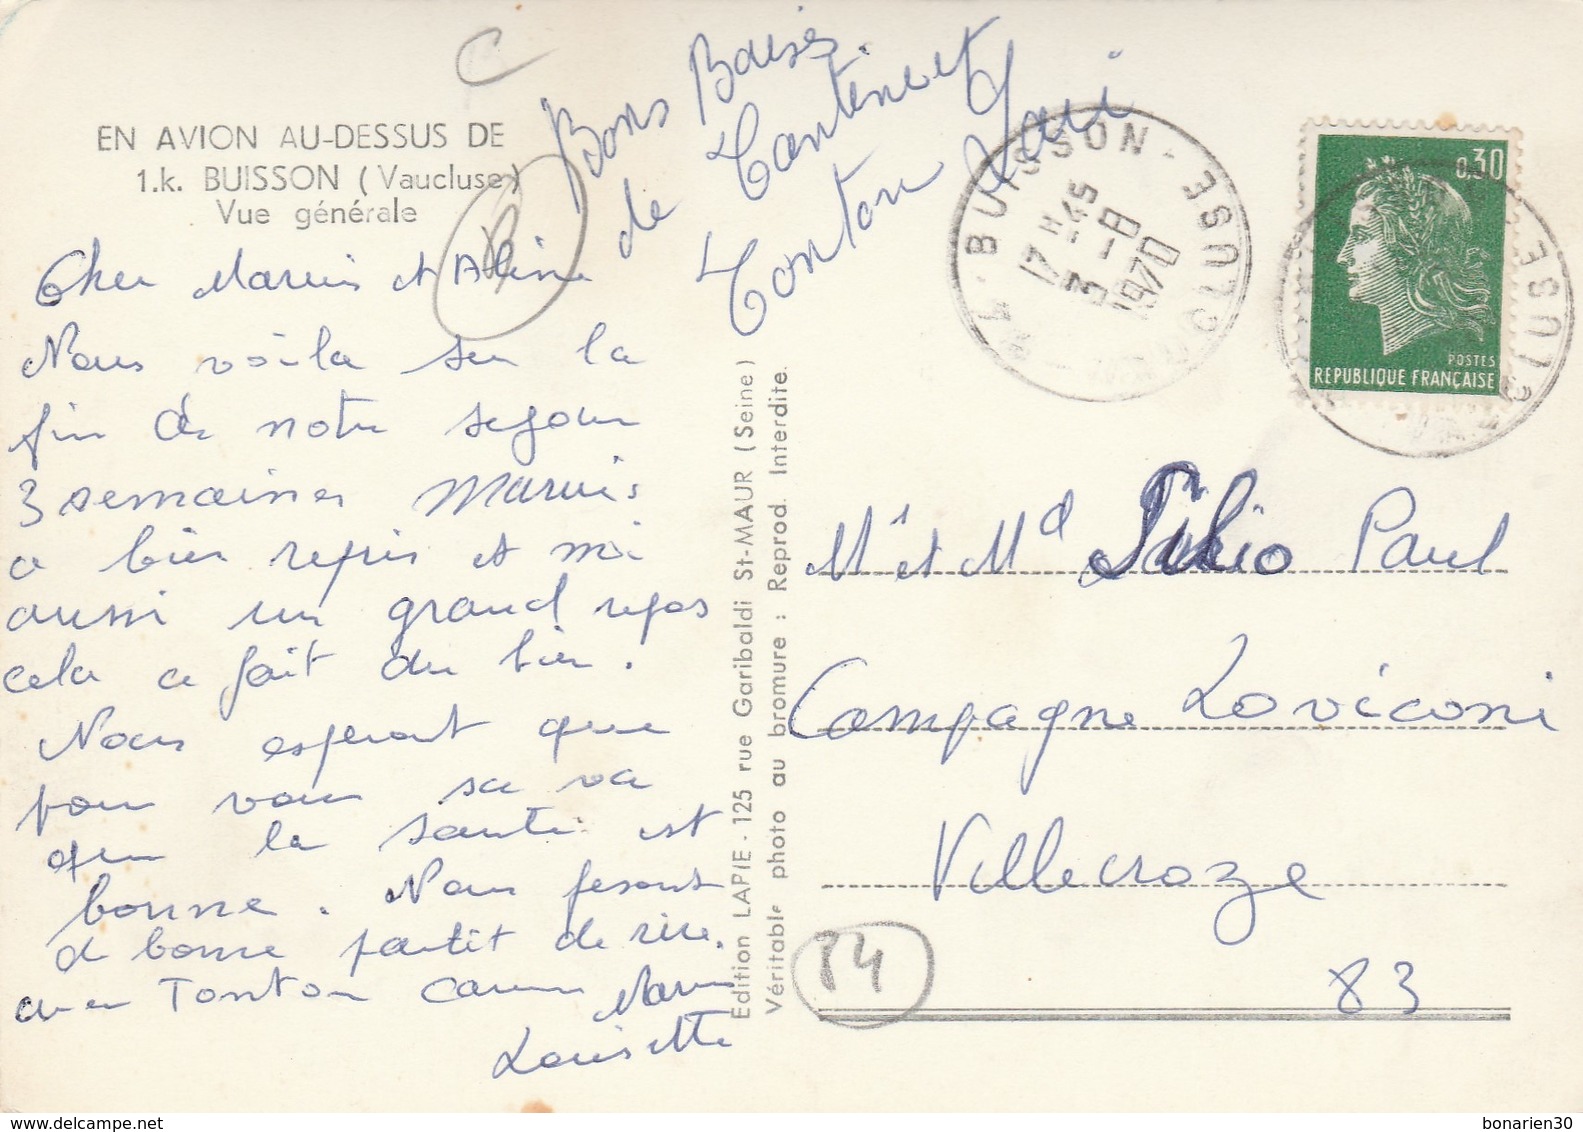 EN AVION AU-DESSUS DE
1.k. BUISSON (Vaucluse)
Vue générale
Cher et Aline
Nous voila sur la
fin de notre sejour
3 semaines
a bien repris et mi
aussi un grand repos
cela a fait du bien.
Nous esperont que
pour vous sa va
que la santé est
bonne. Nous fesont
de bonne partit de rire.
avec Tonton
Louisette
Bons Baises
de Tantine et
Tonton
Edition LAPIE - 125 rue Garibaldi St-MAUR (Seine)
Véritable photo au bromure : Reprod. Interdite.
BUISSON - VAUCLUSE
17 H 45
3 - 8
1970
0,30
POSTES
REPUBLIQUE FRANÇAISE
Mr et Md Paul
Campagne Loviconi
Villecroze
83
84
bonarien30